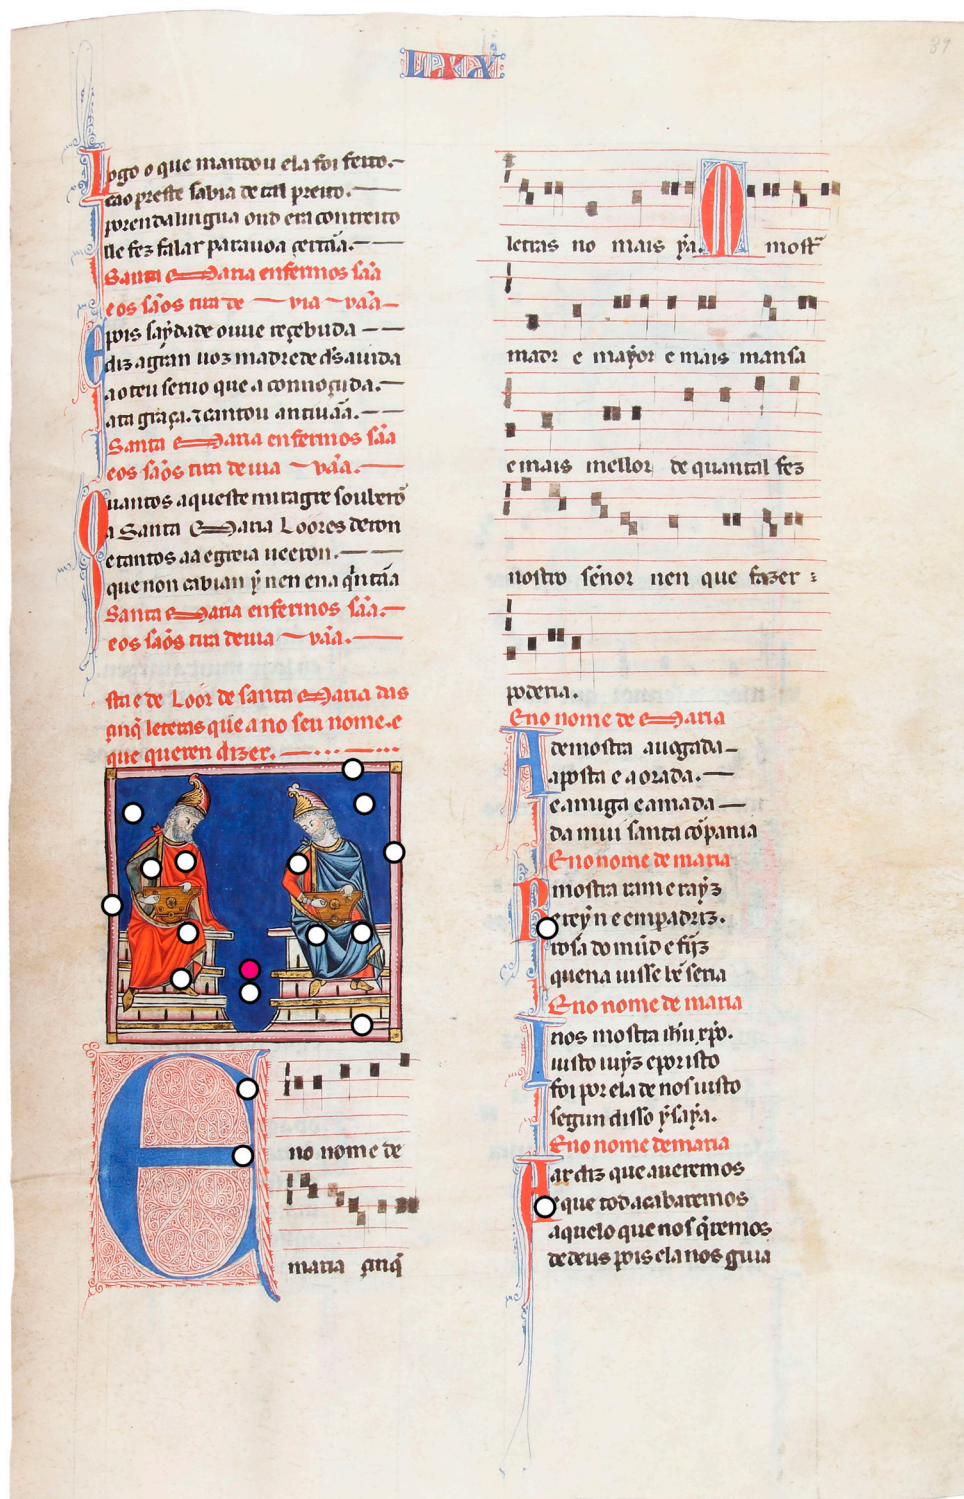 LXX
Logo o que mandou ela foi feito.
tao preste sabia de tal preito.
poren da lingua ond era contreito
lle fez falar paravoa certãa.
Santa Maria enfermos sãa
e os sãos tira de via vãa
pois saýdade ouve
diz a gran uoz madre de d's auida
ao teu seruo que a connoçuda.
ata graça. ⁊ cantou
Santa Maria enfermos sãa
e os sãos tira de uia vãa.
Quantos aqueste miragre souberõ
a Santa Maria Loores deron
e tantos aa egreia ueeron.
que non cabian ẏ nen ena
Santa Maria enfermos sãa.
e os sãos tira de uia vãa.
sta e de Loor de santa Maria das
çinq̃ leteras que a no seu nome. e
que queren dizer.
Eno nome de
maria çinq̃
letras no mais ẏa. M mostr̃
madr e maẏor e mais mansa
e mais mellor de quant al fez
nostro señor nen que fazer
poderia.
Eno nome de Maria
A demostra auogada
aposta e aorada.
e amiga e amada
da mui santa cõpania
Eno nome de maria
R mostra ram e raẏz
e reẏn e emperadriz.
rosa do mũdo e fijz
quena uisse bẽ seria
Eno nome de maria
I nos mostra ihũ xpõ.
iusto iuẏz e por isto
foi por ela de nos uisto
segun disso ẏsaẏa.
Eno nome de maria
A ar diz que aueremos
e que tod acabaremos
aquelo que nos q̃remos
de deus pois ela nos guia